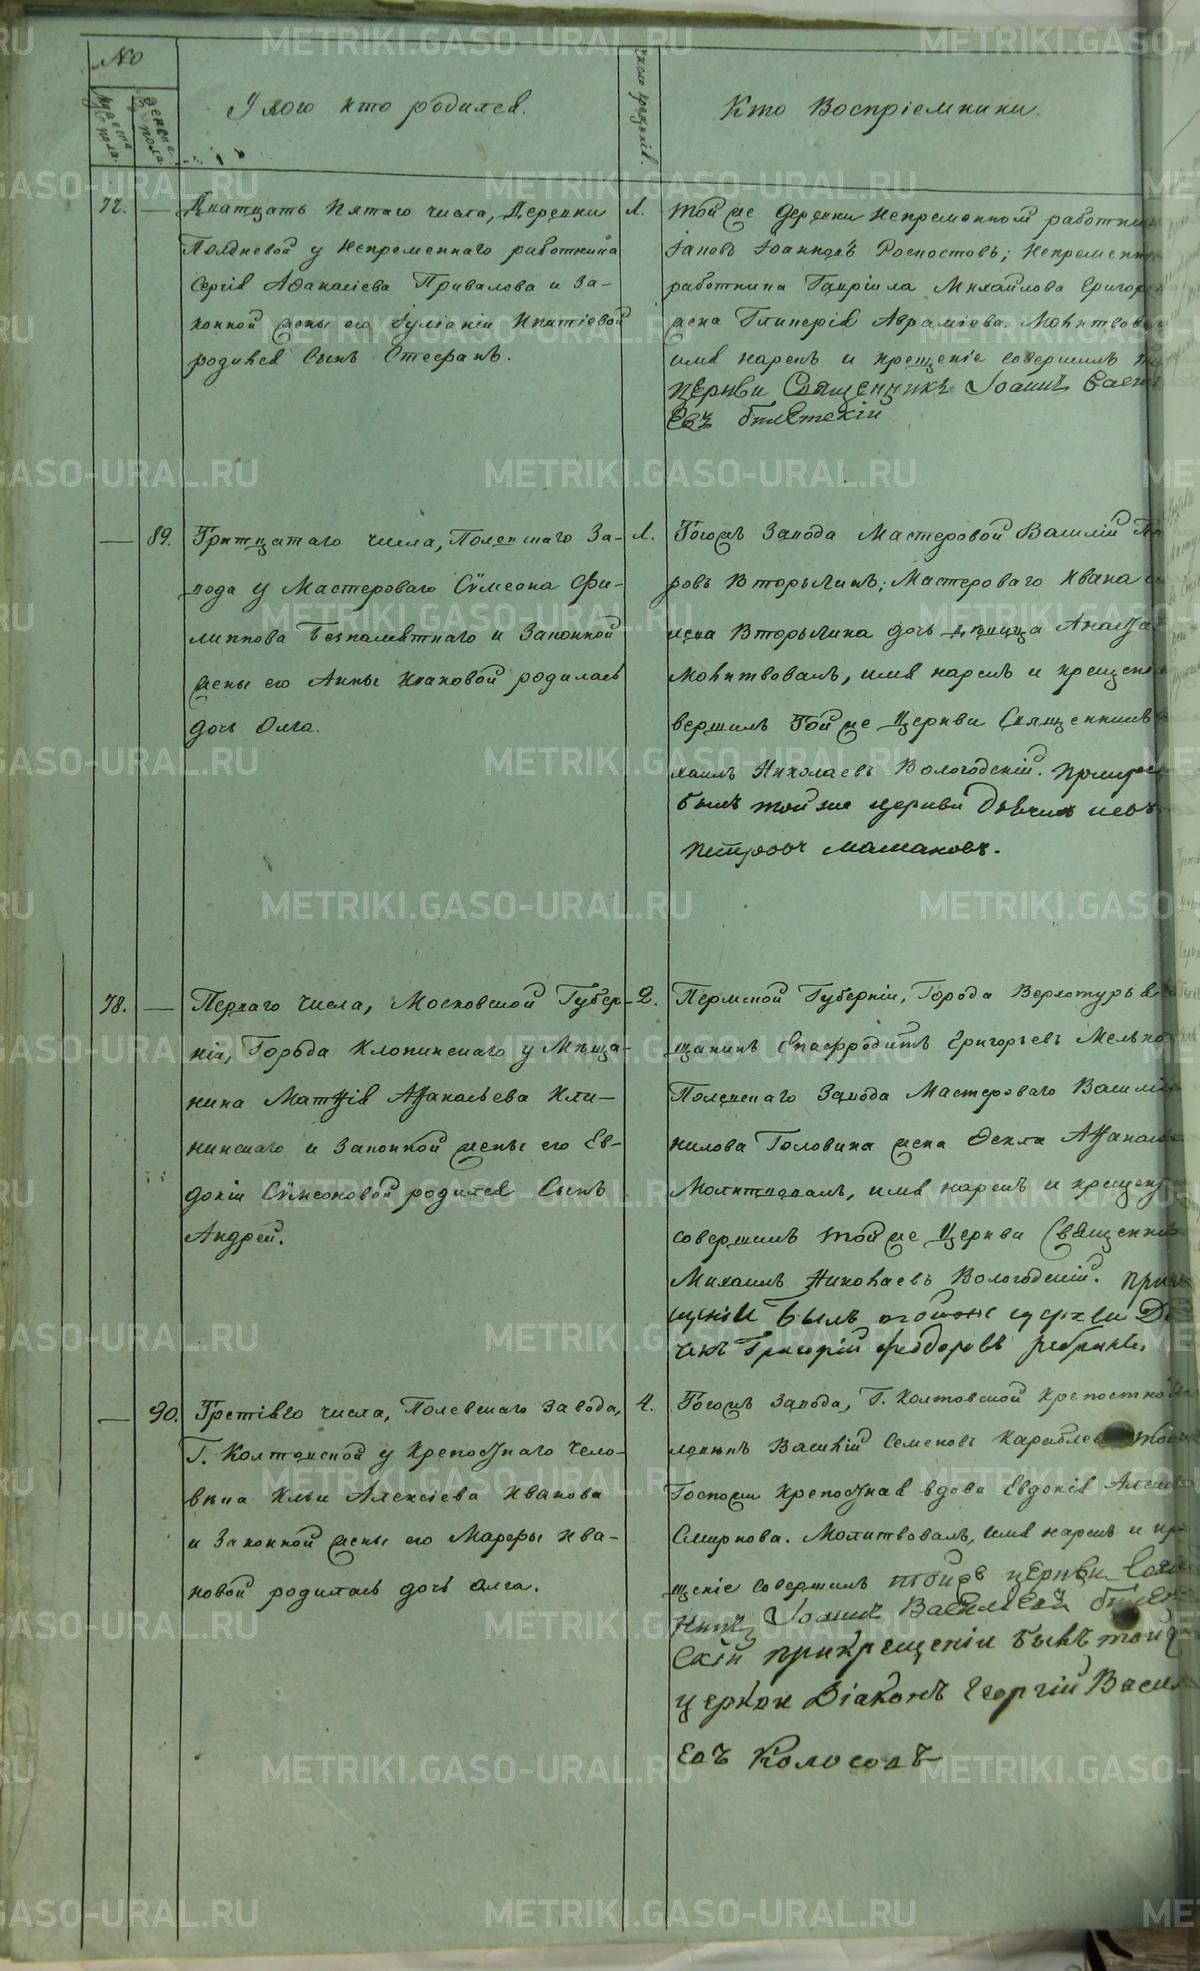 №
мужеска пола.
женска пола.
У кого кто родился.
Число крещенія.
Кто Воспріемники.
77. —
Дватцать Пятаго числа, Деревни
Полдневой у Непременнаго работника
Сергія Афанасіева Привалова и За-
конной жены его Іуліаніи Ипатіевой
родился Сынъ Стефанъ.
1.
той же деревни Непременной работник
Іаковъ Іоанновъ Роспоповъ; Непременн
работника Гавріила Михайлова Григор
жена Гликерія Авраміева. Молитвова
имя нарекъ и крещеніе совершилъ
церкви Священникъ Іоаннъ Васи
евъ билетскій
— 89.
Тритцатаго числа, Полевскаго За-
вода у Мастероваго Сѵмеона Фи-
липпова Безпаметнаго и Законной
жены его Анны Ивановой родилась
дочь Олга.
1.
Тогожъ Завода Мастеровой Василій
ровъ Вторыгинъ; Мастероваго Ивана
жена Вторыгина дочь девица Анаста
Молитвовалъ, имя нарекъ и крещені
вершилъ Той же Церкви Священникъ
хаилъ Николаевъ Вологодскій. При кре
былъ той же церкви Дьячикъ
Петровъ
78. —
Перваго числа, Московской Губер-
ніи, Города Клопинскаго у Мѣща-
нина Матѳія Аѳанасьева Кли-
нинскаго и Законной жены его Ев-
докіи Сѵмеоновой родился Сынъ
Андрей.
2.
Пермской Губерніи, Города Верхотурья
щанинъ Епафродитъ Григорьевъ Мелько
Полевскаго Завода Мастероваго Василія
нилова Головина жена Фекла Аѳанась
Молитвовалъ, имя нарекъ и крещені
совершилъ той же Церкви Священник
Михаилъ Николаевъ Вологодскій. при
щеніи былъ тойже церкви Дья
чекъ Григорій Феодоровъ
— 90.
Третіяго числа, Полевскаго завода,
Г. Колтовской у крепостнаго Чело-
вѣка Ильи Алексіева Иванова
и Законной жены его Марфы Ива-
новой родилась дочь Олга.
4.
Тогожъ Завода, Г. Колтовской крепостной
ловекъ Василій Семеновъ Караблев той
Госпожи крепостная вдова Евдокія Алекс
Смирнова. Молитвовалъ, имя нарекъ и кр
щеніе совершилъ тойже церкви Свяще
никъ Іоаннъ Васильевъ билет
скій при крещеніи былъ той же
церкви Діаконъ Георгій Васил
евъ Колосовъ